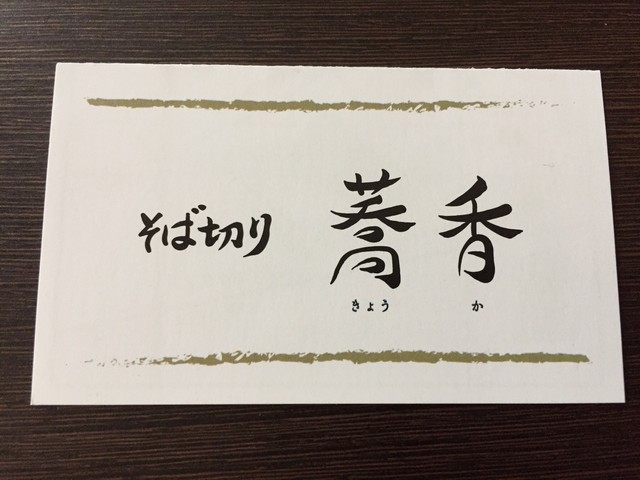 そば切り 蕎香
きょう か